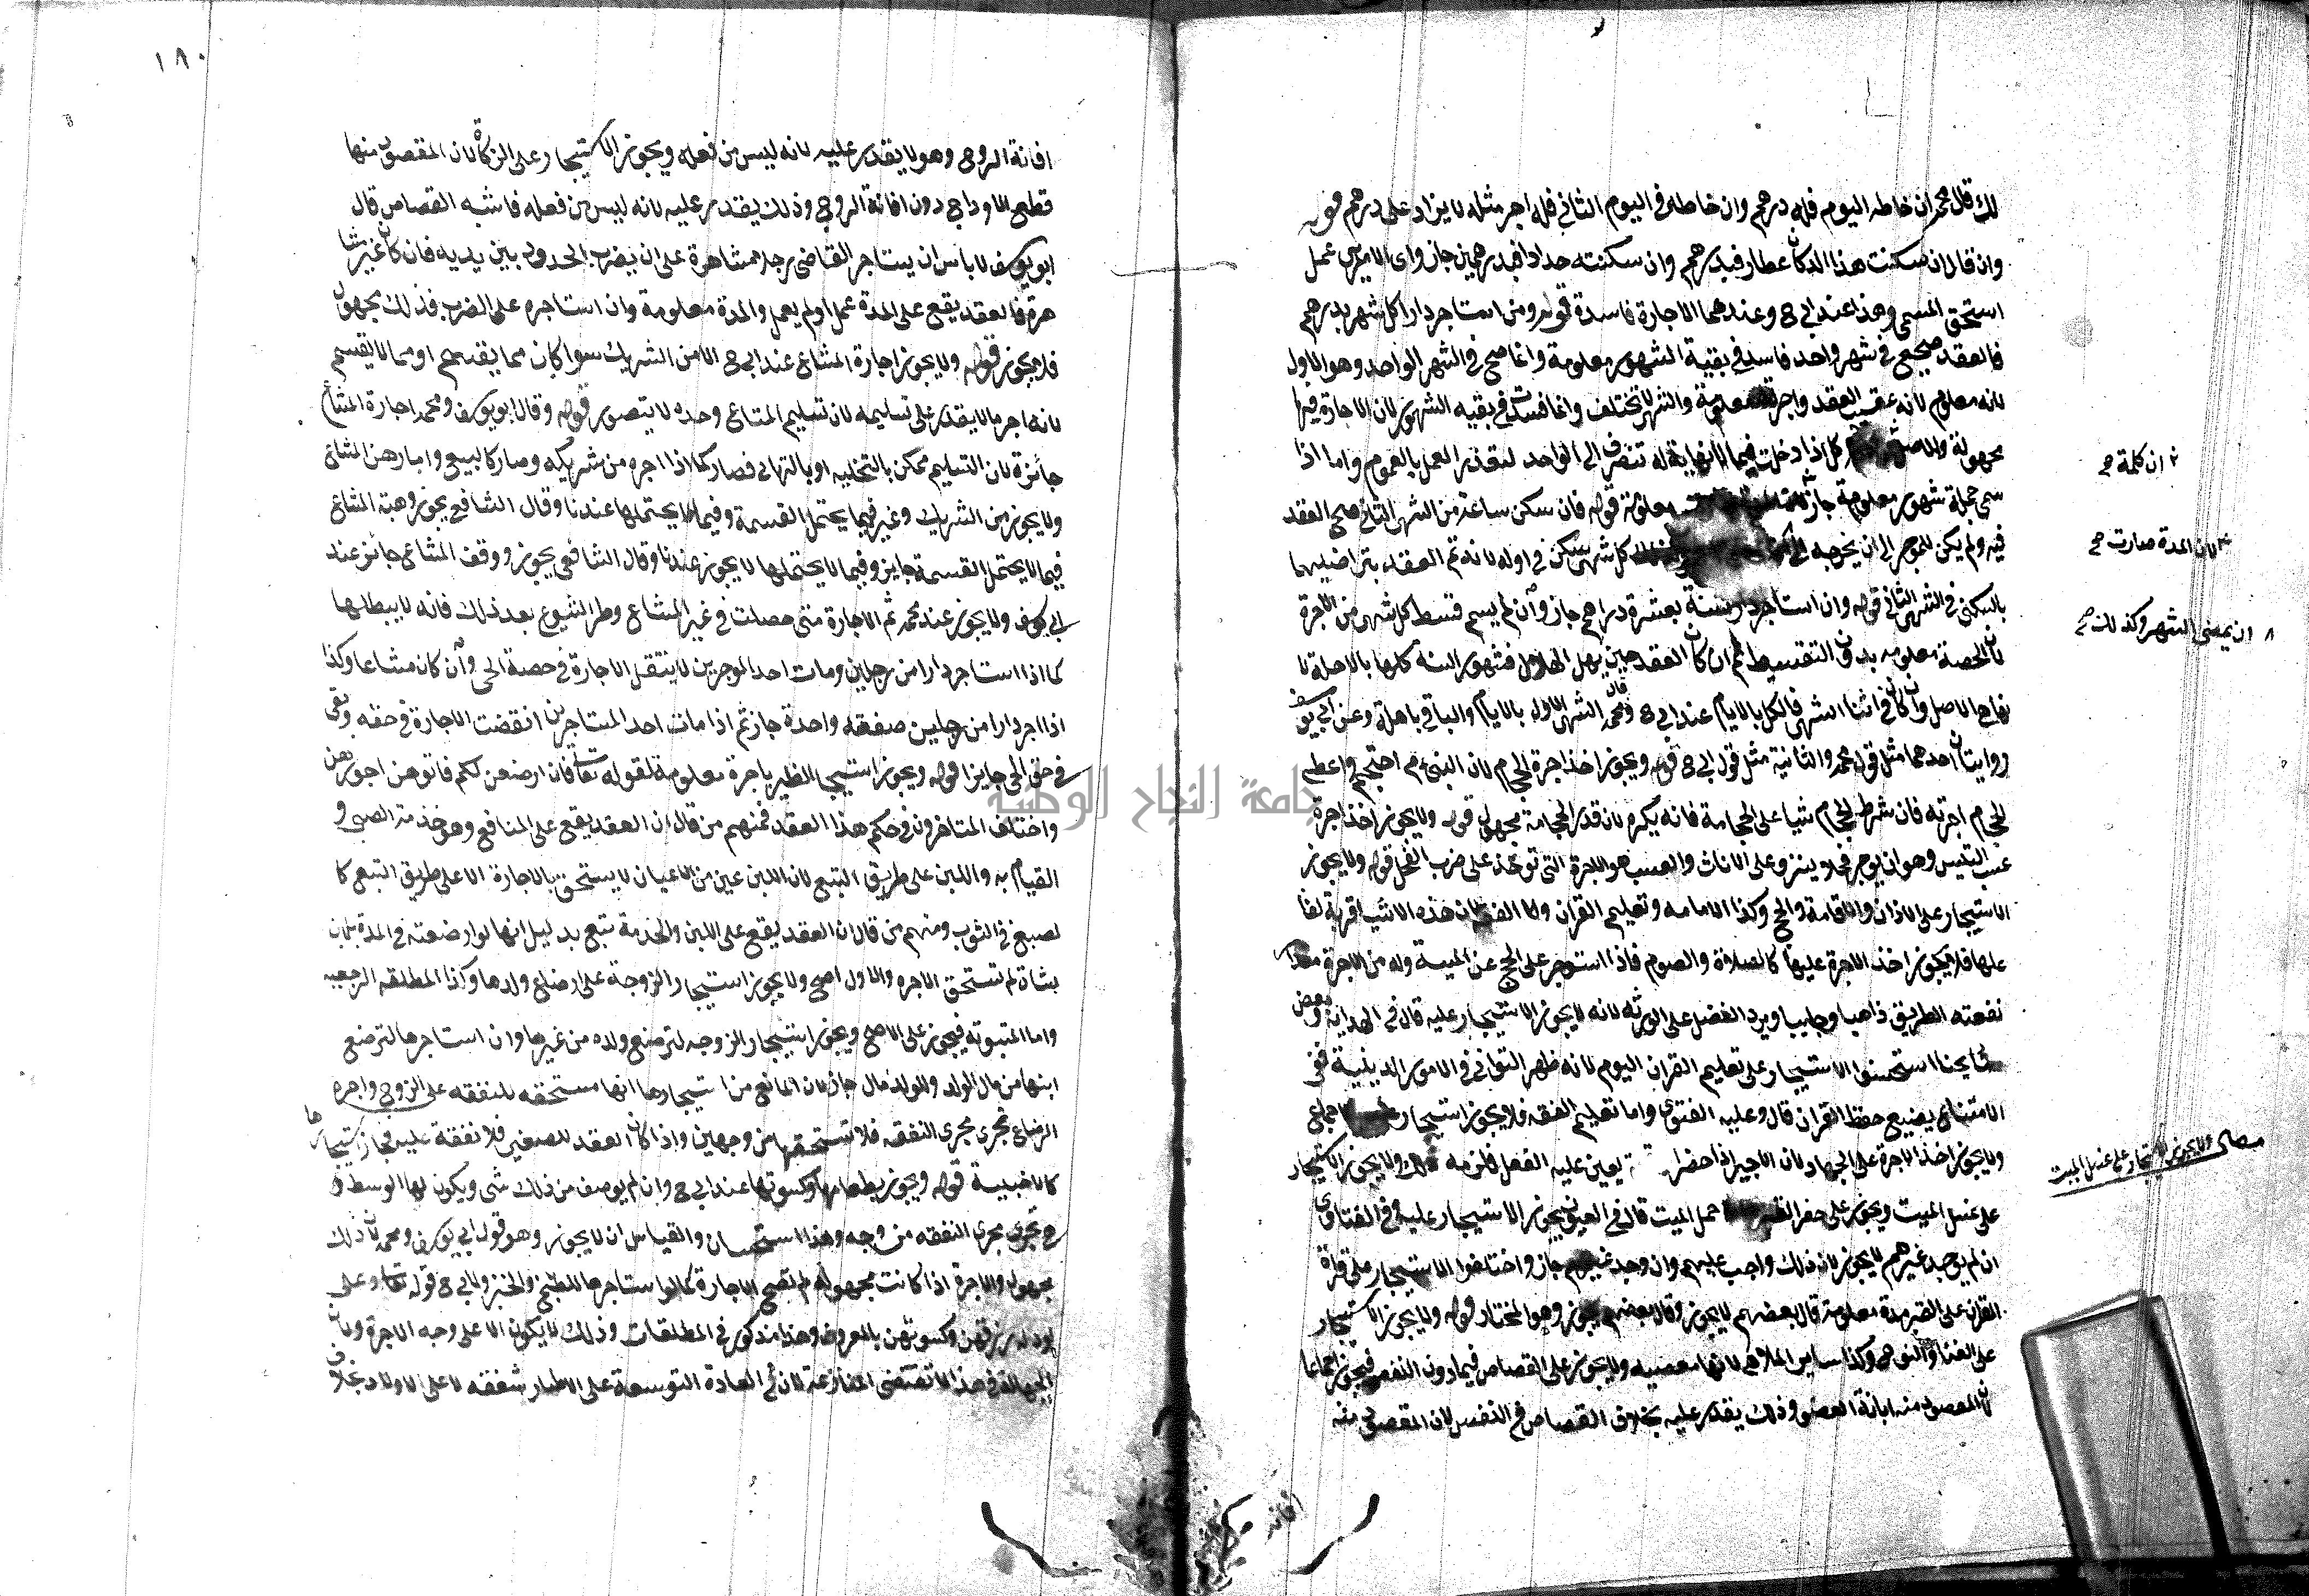 لك قال محمد ان خاطه اليوم فله درهم وان خاطه في اليوم الثاني فله اجر مثله لا يزاد على درهم قوله
وان قال ان سكنت هذا الدكان عطار فبدرهم وان سكنته حدادا فبدرهمين جاز واى الامرين عمل
استحق المسمى وهذا عند ابي ح وعندهما الاجارة فاسدة قوله ومن استاجر دارا كل شهر بدرهم
فالعقد صحيح في شهر واحد فاسد في بقية الشهور معلومة وانما صح في الشهر الواحد وهو الاول
لانه معلوم لانه عقيب العقد واجرته معلومة والشهر لا تختلف وانما فسدت في بقية الشهور لان الاجارة فيها
مجهولة والاصل كل اذا دخلت فيما لا نهاية له تنصرف الى الواحد لتعذر العمل بالعموم واما اذا
سمى جملة شهور معلومة جاز معلومة قوله فان سكن ساعة من الشهر الثاني صح العقد
فيه ولم يكن للموجر ان يخرجه الى كل شهر سكن في اوله لانه تم العقد بتراضيهما
بالسكنى في الشهر الثاني قوله وان استاجر دارا سنة بعشرة دراهم جاز وان لم يسم قسط كل شهر من الاجرة
لان الحصة معلومه بدون التقسيط ثم ان كان العقد حين يهل الهلال فشهور السنة كلها بالاهلة لا
نها الاصل وان كان في اثنا الشهر فالكل بالايام عند ابي ح وقال محمد الشهر الاول بالايام والباقي باهلة وعن ابي يوسف
روايتان احدهما مثل قول محمد والثانية مثل قول ابي ح قوله ويجوز اخذ اجرة الحجام لان النبي م احتجم واعطى
الحجام اجرته فان شرط الحجام شيا على الحجامة فانه يكره لان قدر الحجامة مجهول قوله ولا يجوز اخذ اجرة
عسب التيس وهو ان يوجر فحلا ينزو على الاناث والعسب هو الاجرة التى توخذ على ضرب الفحل قوله ولا يجوز
الاستيجار على الاذان والاقامة والحج وكذا الامامه وتعليم القران والفقه لان هذه الاشيا قربة لفا
علها فلا يجوز اخذ الاجرة عليها كالصلاة والصوم فاذا استوجر على الحج عن الميت وله من الاجرة مقدار
نفقته الطريق ذاهبا وجاييا ويرد الفضل على الورثه لانه لا يجوز الاستيجار عليه قال في الهداية وبعض
مشايخنا استحسنوا الاستيجار على تعليم القران اليوم لانه ظهر التواني في الامور الدينية ففي
الامتناع يضيع حفظ القران قال وعليه الفتوى واما تعليم الفقه فلا يجوز استيجار اجماعا
ولا يجوز اخذ الاجرة على الجهاد لان الاجير اذا حضر يعين عليه الفعل فلزمه ذلك ولا يجوز الاستيجار
على غسل الميت ويجوز على حفر القبر حمل الميت قال في العيون يجوز الاستيجار عليه وفي الفتاوى
ان لم يوجد غيرهم لا يجوز لان ذلك واجب عليهم وان وجد غيرهم جاز واختلفوا الاستيجار على قراة
القران على القبر مدة معلومة قال بعضهم لا يجوز وقال بعضهم يجوز وهو المختار قوله ولا يجوز الاستيجار
على الغنا والنوح وكذا ساير الملاهى لانها معصيه ولا يجوز على القصاص فيما دون النفس فيجوز اجماعا
لان المقصود منه ابانة العضو وذلك يقدر عليه بخلاف القصاص في النفس لان المقصود منه
افاتة
ان كلمة صح
لان المدة صارت صح
ان يمضى الشهر وكذلك صح
مطلب ولا يجوز الاستيجار على غسل الميت
١٨٠
افاتة الروح وهو لا يقدر عليه لانه ليس من فعله ويجوز الاستيجار على الزكاة لان المقصود منها
قطع الاوداج دون افاتة الروح وذلك يقدر عليه لانه ليس من فعله فاشبه القصاص قال
ابو يوسف لا باس ان يستاجر القاضى رجلا مشاهرة على ان يضرب الحدود بين يديه فان كان غير مشا
هرة فالعقد يقع على المدة عمل او لم يعمل والمدة معلومة وان استاجره على الضرب فذلك مجهول
فلا يجوز قوله ولا يجوز اجارة المشاع عند ابي ح الا من الشريك سوا كان مما يقسم او مما لا يقسم
لانه اجر ما لا يقدر على تسليمه لان تسليم المشاع وحده لا يتصور قوله وقال ابو يوسف ومحمد اجارة المشاع
جائزة لان التسليم ممكن بالتخليه او بالتهائى فصار كما اذا اجره من شريكه وصار كالبيع واما رهن المشاع
ولا يجوز من الشريك وغيره فيما يحتمل القسمة وفيما لا يحتملها عندنا وقال الشافعى يجوز وهبة المشاع
فيما لا يحتمل القسمة جايز وفيما لا يحتملها لا يجوز عندنا وقال الشافعى يجوز ووقف المشاع جائز عند
ابي يوسف ولا يجوز عند محمد ثم الاجارة متى حصلت في غير المشاع وطرا الشيوع بعد ذلك فانه لا يبطلها
كما اذا استاجر دارا من رجلين ومات احد الموجرين لا ينتقل الاجارة في حصة الحى وان كان مشاعا وكذا
اذا اجر دارا من رجلين صفقه واحدة جاز ثم اذا مات احد المستاجرين انقضت الاجارة في حقه وبقى
في حق الحى جايزا قوله ويجوز استيجار الظير باجرة معلومة لقوله تعالى فان ارضعن لكم فاتوهن اجورهن
واختلف المتاخرون في حكم هذا العقد فمنهم من قال ان العقد يقع على المنافع وهو خدمة الصبى و
القيام به واللبن على طريق التبع لان اللبن عين من الاعيان لا يستحق بالاجارة الا على طريق التبع كا
لصبغ في الثوب ومنهم من قال ان العقد يقع على اللبن والخدمة تبع بدليل انها لو ارضعته في المدة بلبن
شاة لم تستحق الاجره والاول اصح ولا يجوز استيجار الزوجة على رضاع ولدها وكذا المطلقه الرجعيه
واما المبتوته فيجوز على الاصح ويجوز استيجار الزوجه لترضع ولده من غيرها وان استاجرها لترضع
ابنها من مال الولد وللولد مال جاز لان المانع من استيجارها انها مستحقه للنفقه على الزوج واجره
الرضاع تجرى مجرى النفقه فلا تستحقها من وجهين واذا كان العقد للصغير فلا نفقة عليه فجاز استيجارها
كالاجنبية قوله ويجوز بطعامها وكسوتها عند ابي ح وان لم يوصف من ذلك شى ويكون لها الوسط و
هى تجرى مجرى النفقه من وجه وهذا استحسان والقياس ان لا يجوز وهو قول ابي يوسف ومحمد لان ذلك
مجهول والاجرة اذا كانت مجهوله لم تصح الاجارة كما لو استاجرها للطبخ والخبز ولابي ح قوله تعالى وعلى
المولود له رزقهن وكسوتهن بالمعروف وهذا مذكور في المطلقات وذلك لا يكون الا على وجه الاجرة ولان
الجهالة في هذا لا تقتضى المنازعة لان في العادة التوسعة على الاظيار شفقه لا على الاولاد بخلاف
جامعة النجاح الوطنية